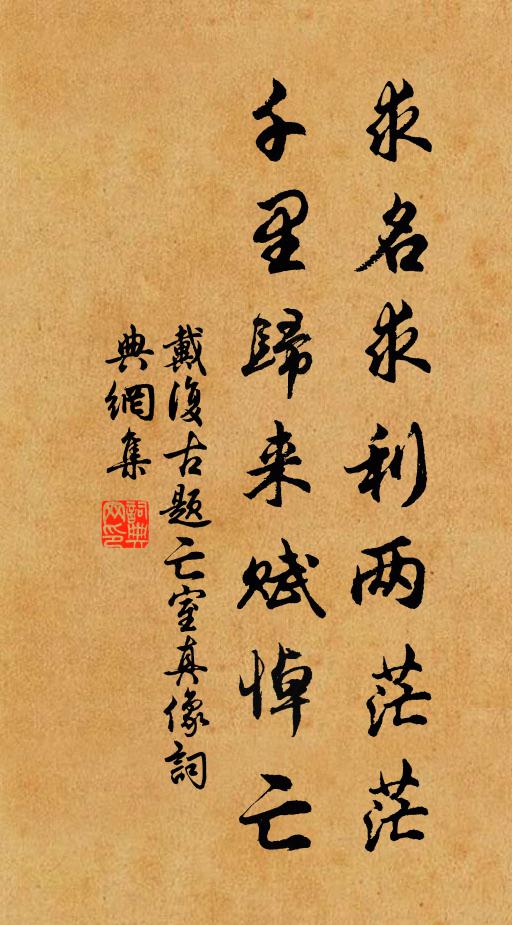 求名求利两茫茫
千里歸来赋悼亡
戴復古题亡室真像詞
典網集
詞典网印